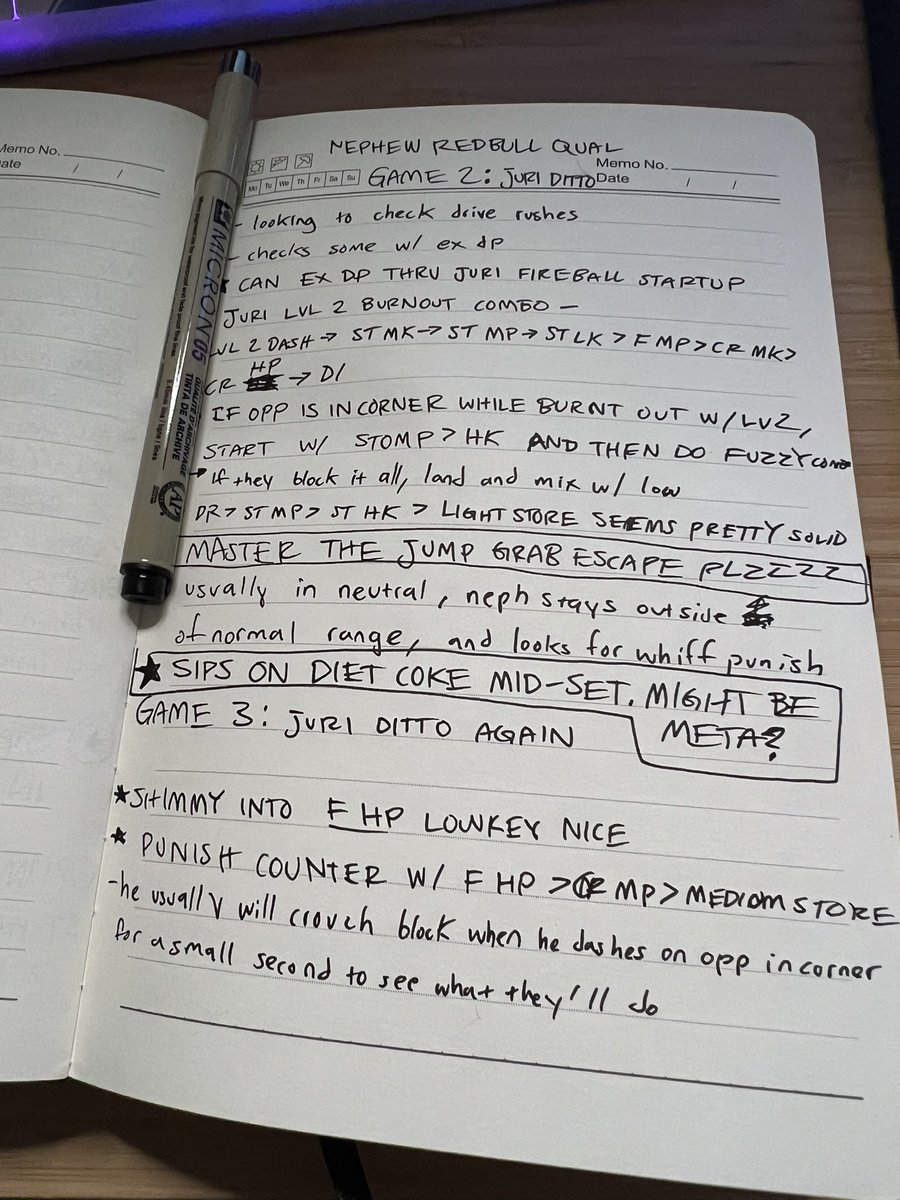 Memo No.
ate / /
NEPHEW REDBULL QUAL
Memo No.
Mo Tu We Th Fr Sa Su
GAME 2: JURI DITTO
Date / /
- looking to check drive rushes
- checks some w/ ex dp
★ CAN EX DP THRU JURI FIREBALL STARTUP
JURI LVL 2 BURNOUT COMBO —
LVL 2 DASH → ST MK → ST MP → ST LK > F MP > CR MK >
CR HP → DI
IF OPP IS IN CORNER WHILE BURNT OUT W/ LV2,
START W/ STOMP > HK AND THEN DO FUZZY combo
→ If they block it all, land and mix w/ low
DR > ST MP > ST HK > LIGHT STORE SEEMS PRETTY SOLID
MASTER THE JUMP GRAB ESCAPE PLZZZZ
usually in neutral, neph stays outside
of normal range, and looks for whiff punish
★ SIPS ON DIET COKE MID-SET. MIGHT BE
META?
GAME 3: JURI DITTO AGAIN
★ SHIMMY INTO F HP LOWKEY NICE
★ PUNISH COUNTER W/ F HP > CR MP > MEDIUM STORE
- he usually will crouch block when he dashes on opp in corner
for a small second to see what they'll do
MICRON 05
QUALITÉ D'ARCHIVAGE
TINTA DE ARCHIVE
AP